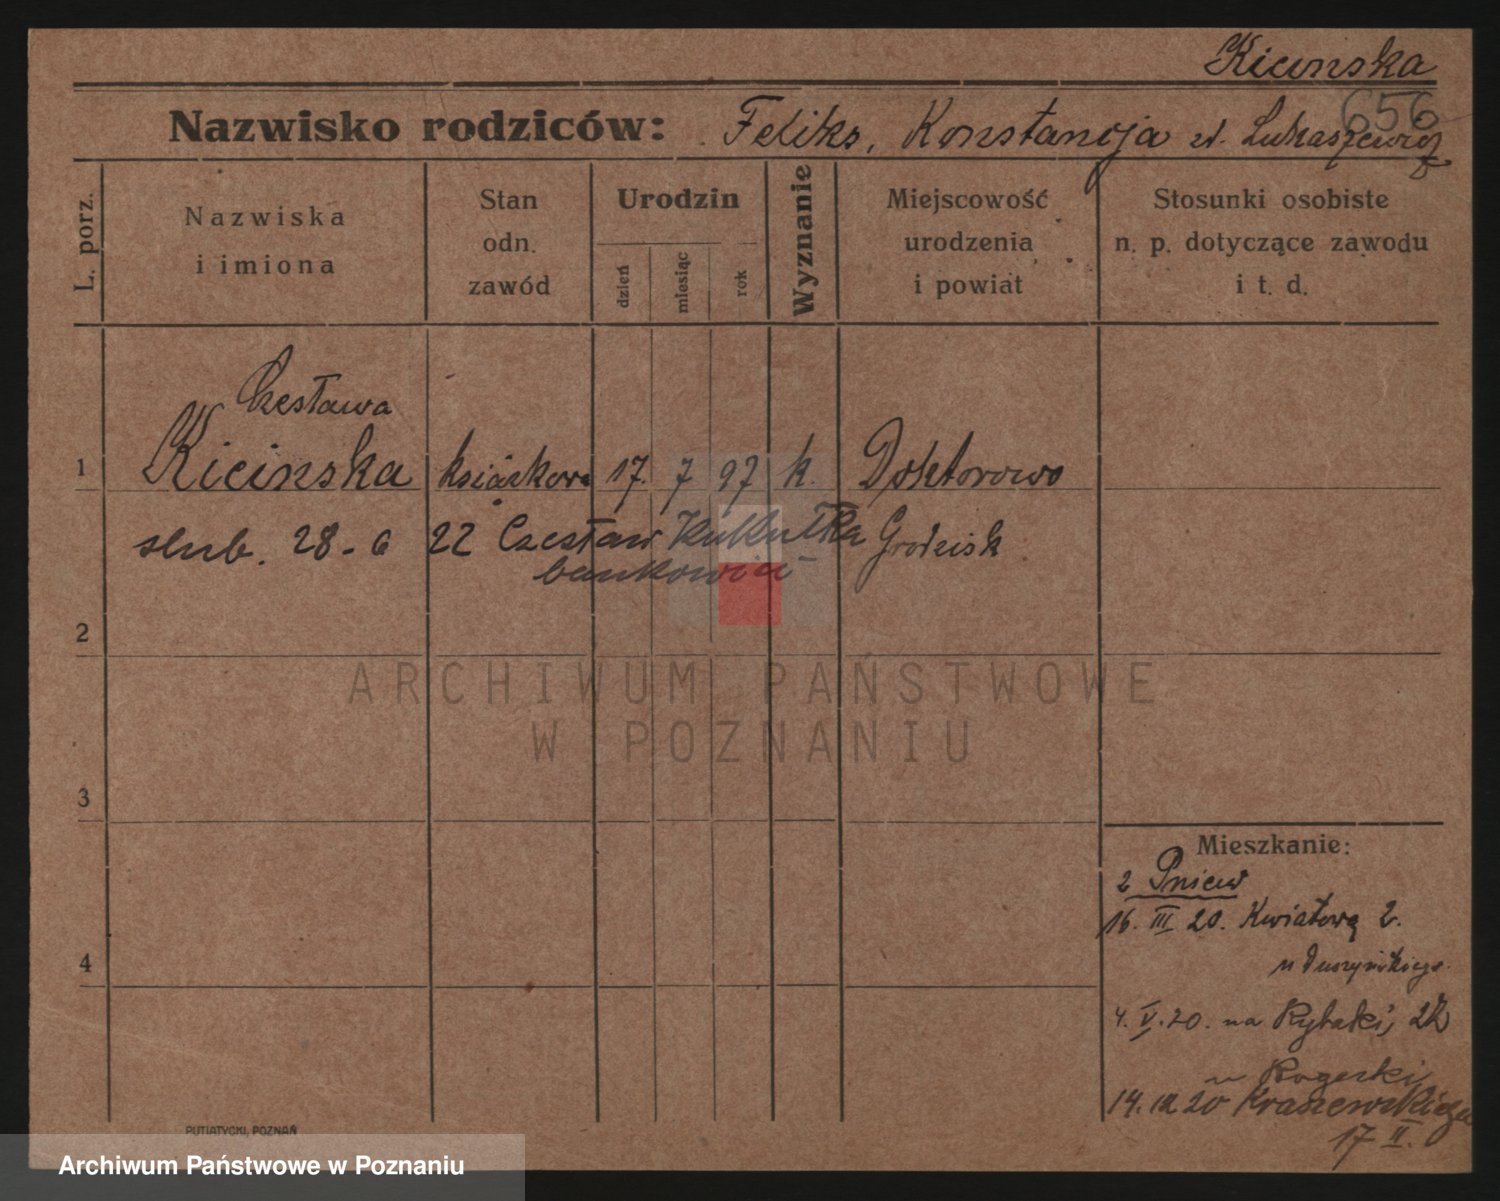 Kicinska
656
Nazwisko rodziców: Feliks, Konstancja zd. Lukaszewicz
L. porz.
Nazwiska
i imiona
Stan
odn.
zawód
Urodzin
dzień
miesiąc
rok
Wyznanie
Miejscowość
urodzenia
i powiat
Stosunki osobiste
n. p. dotyczące zawodu
i t. d.
Czesława
1 Kicinska książkowa 17. 7 97 k. Doktorowo
slub. 28-6 22 Czesław Kukułka Grodzisk
bankowiec
2
3
4
ARCHIWUM PAŃSTWOWE
W POZNANIU
Mieszkanie:
z Pniew
16. III 20. Kwiatową 2.
u Duszyńskiego
4. V. 20. na Rybaki,
u Rogerki
14. 20 Kraszewskiego
17 II.
PUTIATYCKI, POZNAŃ
Archiwum Państwowe w Poznaniu